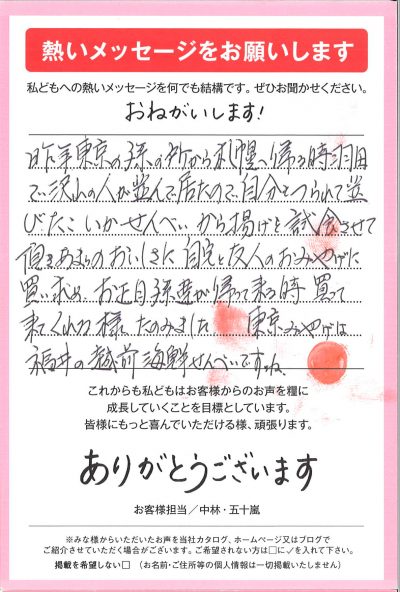 熱いメッセージをお願いします
私どもへの熱いメッセージを何でも結構です。ぜひお聞かせください。
おねがいします!
昨年東京の孫の所から札幌へ帰る時羽田
で沢山の人が並んで居たので自分もつられて並
びたこいかせんべい から揚げを試食させて
頂きあまりのおいしさに 自宅と友人のおみやげに
買い求め お正月孫達が帰って来る時 買って
来てくれる様 たのみました 東京みやげは
福井の越前海鮮せんべいですね
これからも私どもはお客様からのお声を糧に
成長していくことを目標としています。
皆様にもっと喜んでいただける様、頑張ります。
ありがとうございます
お客様担当/中林・五十嵐
※みな様からいただいたお声を当社カタログ、ホームページ又はブログで
ご紹介させていただく場合がございます。ご希望されない方は□に✓を入れて下さい。
掲載を希望しない□ (お名前・ご住所等の個人情報は一切掲載いたしません)